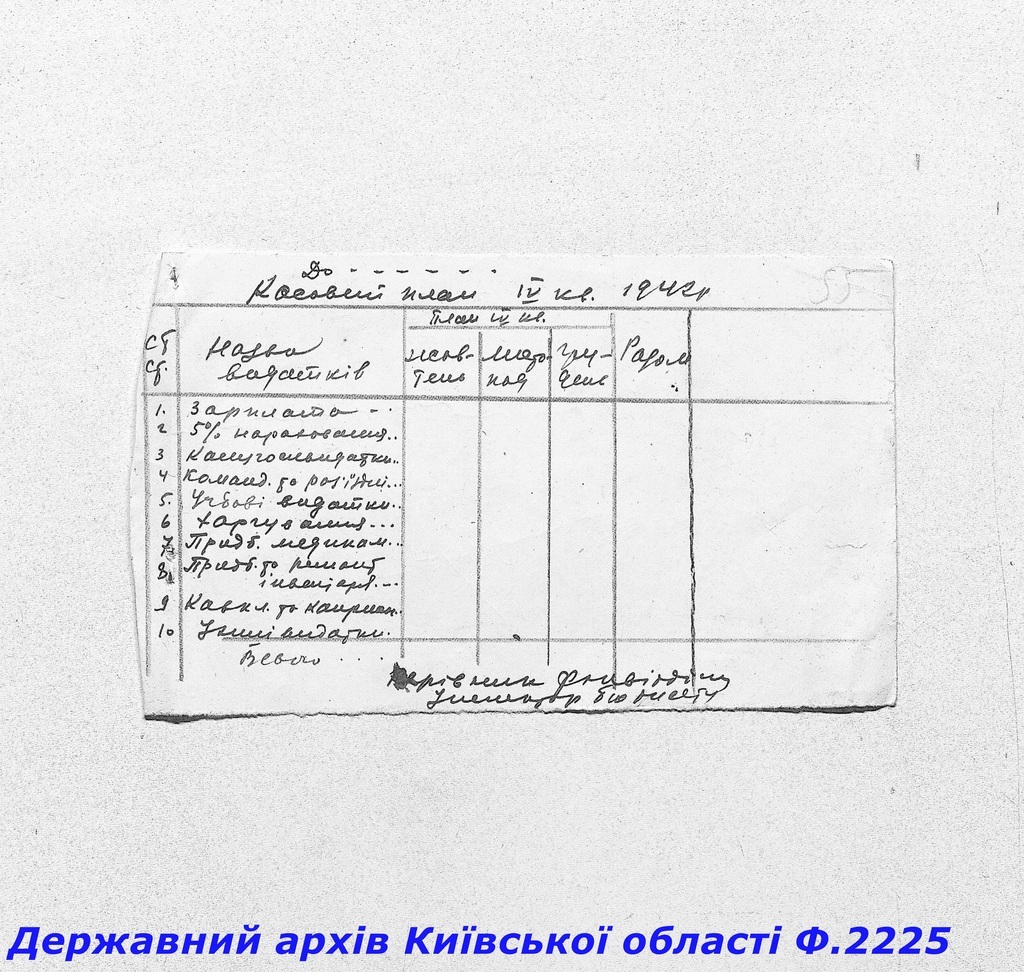 До - - - - - -
Касовий план IV кв. 1942р
План IV кв.
СТ
СТ.
Назва
видатків
жов-
тень
листо-
пад
гру-
день
Разом
1. Зарплата - -
2 5% нарахования..
3 Канцгоспвидатки..
4 Команд. та роз'їзні...
5. Учбові видатки..
6 Харчування...
7. Придб. медикам..
8. Придб. та ремонт
інвентаря...
9 Капвкл. та капремон..
10 Інші видатки.
Всього . . .
Керівник фінвідділу
Інспектор бюджету
55
Державний архів Київської області Ф.2225